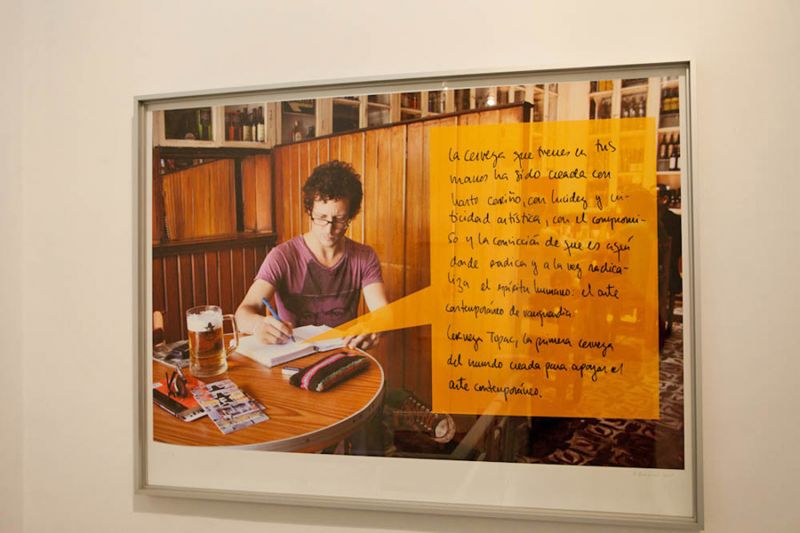 La cerveza que tienes en tus
manos ha sido creada con
harto cariño, con lucidez y au-
ticidad artística, con el compromi-
so y la convicción de que es aquí
donde radica y a la vez radica-
liza el espíritu humano: el arte
contemporáneo de vanguardia.
Cerveza Tópac, la primera cerveza
del mundo creada para apoyar el
arte contemporáneo.